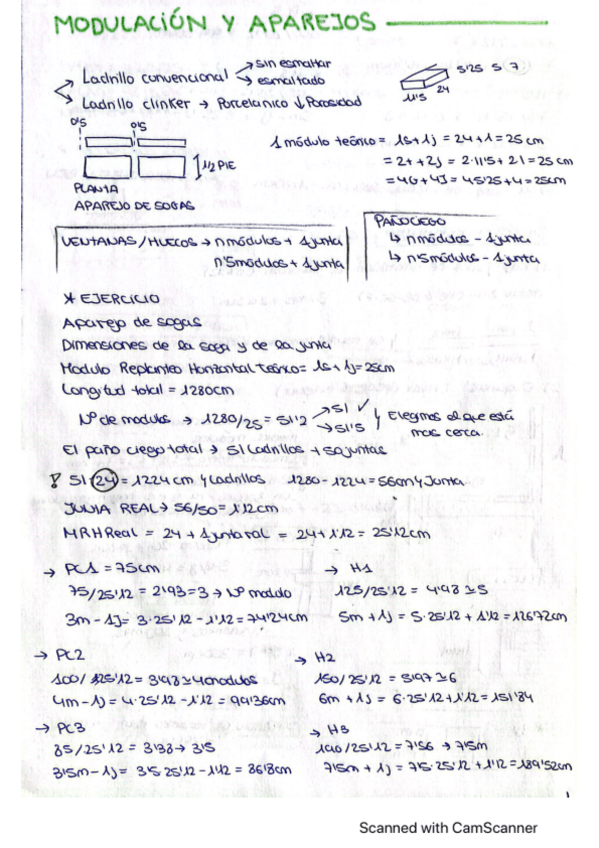 MODULACIÓN Y APAREJOS
Ladrillo convencional → sin esmaltar
→ esmaltado
Ladrillo clinker → Porcelanico ↓ Porosidad
5'25 5 (7
11'5 24
0'5 0'5
1/2 PIE
PLANTA
APAREJO DE SOGAS
1 módulo teórico = 1s + 1j = 24 + 1 = 25 cm
= 2t + 2j = 2·11'5 + 2·1 = 25 cm
= 4G + 4J = 4·5'25 + 4 = 25cm
VENTANAS/HUECOS → n módulos + 1 junta
n'5 módulos + 1 junta
PAÑO CIEGO
↳ n módulos - 1 junta
↳ n'5 módulos - 1 junta
* EJERCICIO
Aparejo de sogas
Dimensiones de la soga y de la junta
Modulo Replanteo Horizontal teórico = 1s + 1j = 25cm
Longitud total = 1280cm
Nº de modulos → 1280/25 = 51'2 → 51 ✓
→ 51'5
Elegimos el que está
mas cerca.
El paño ciego total → 51 ladrillos + 50 juntas
! 51·24 = 1224 cm y ladrillos 1280 - 1224 = 56cm y Junta
JUNTA REAL → 56/50 = 1'12cm
MRH Real = 24 + 1 junta real = 24 + 1'12 = 25'12cm
→ PC1 = 75cm
75/25'12 = 2'93 = 3 → Nº modulo
3m - 1j = 3·25'12 - 1'12 = 74'24cm
→ H1
125/25'12 = 4'98 ≅ 5
5m + 1j = 5·25'12 + 1'12 = 126'72cm
→ PC2
100/125'12 = 3'98 ≅ 4 modulos
4m - 1j = 4·25'12 - 1'12 = 99'36cm
→ H2
150/25'12 = 5'97 ≅ 6
6m + 1j = 6·25'12 + 1'12 = 151'84
→ PC3
85/25'12 = 3'38 → 3'5
3'5m - 1j = 3'5·25'12 - 1'12 = 86'8cm
→ H3
190/25'12 = 7'56 → 7'5m
7'5m + 1j = 7'5·25'12 + 1'12 = 189'52cm
Scanned with CamScanner